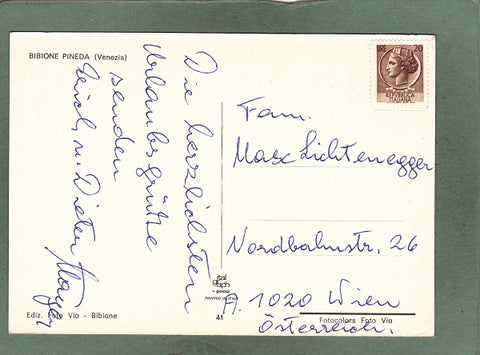 BIBIONE PINEDA (Venezia)
Die herzlichsten
Urlaubsgrüße
senden
u. Dieter
LIRE 20
REPUBBLICA
ITALIANA
Fam.
Max Lichtenegger
Nordbahnstr. 26
A. 1020 Wien
Österreich.
ital
graph
genova
PRINTED IN ITALY
41
Ediz. Foto Vio - Bibione
Fotocolors Foto Vio